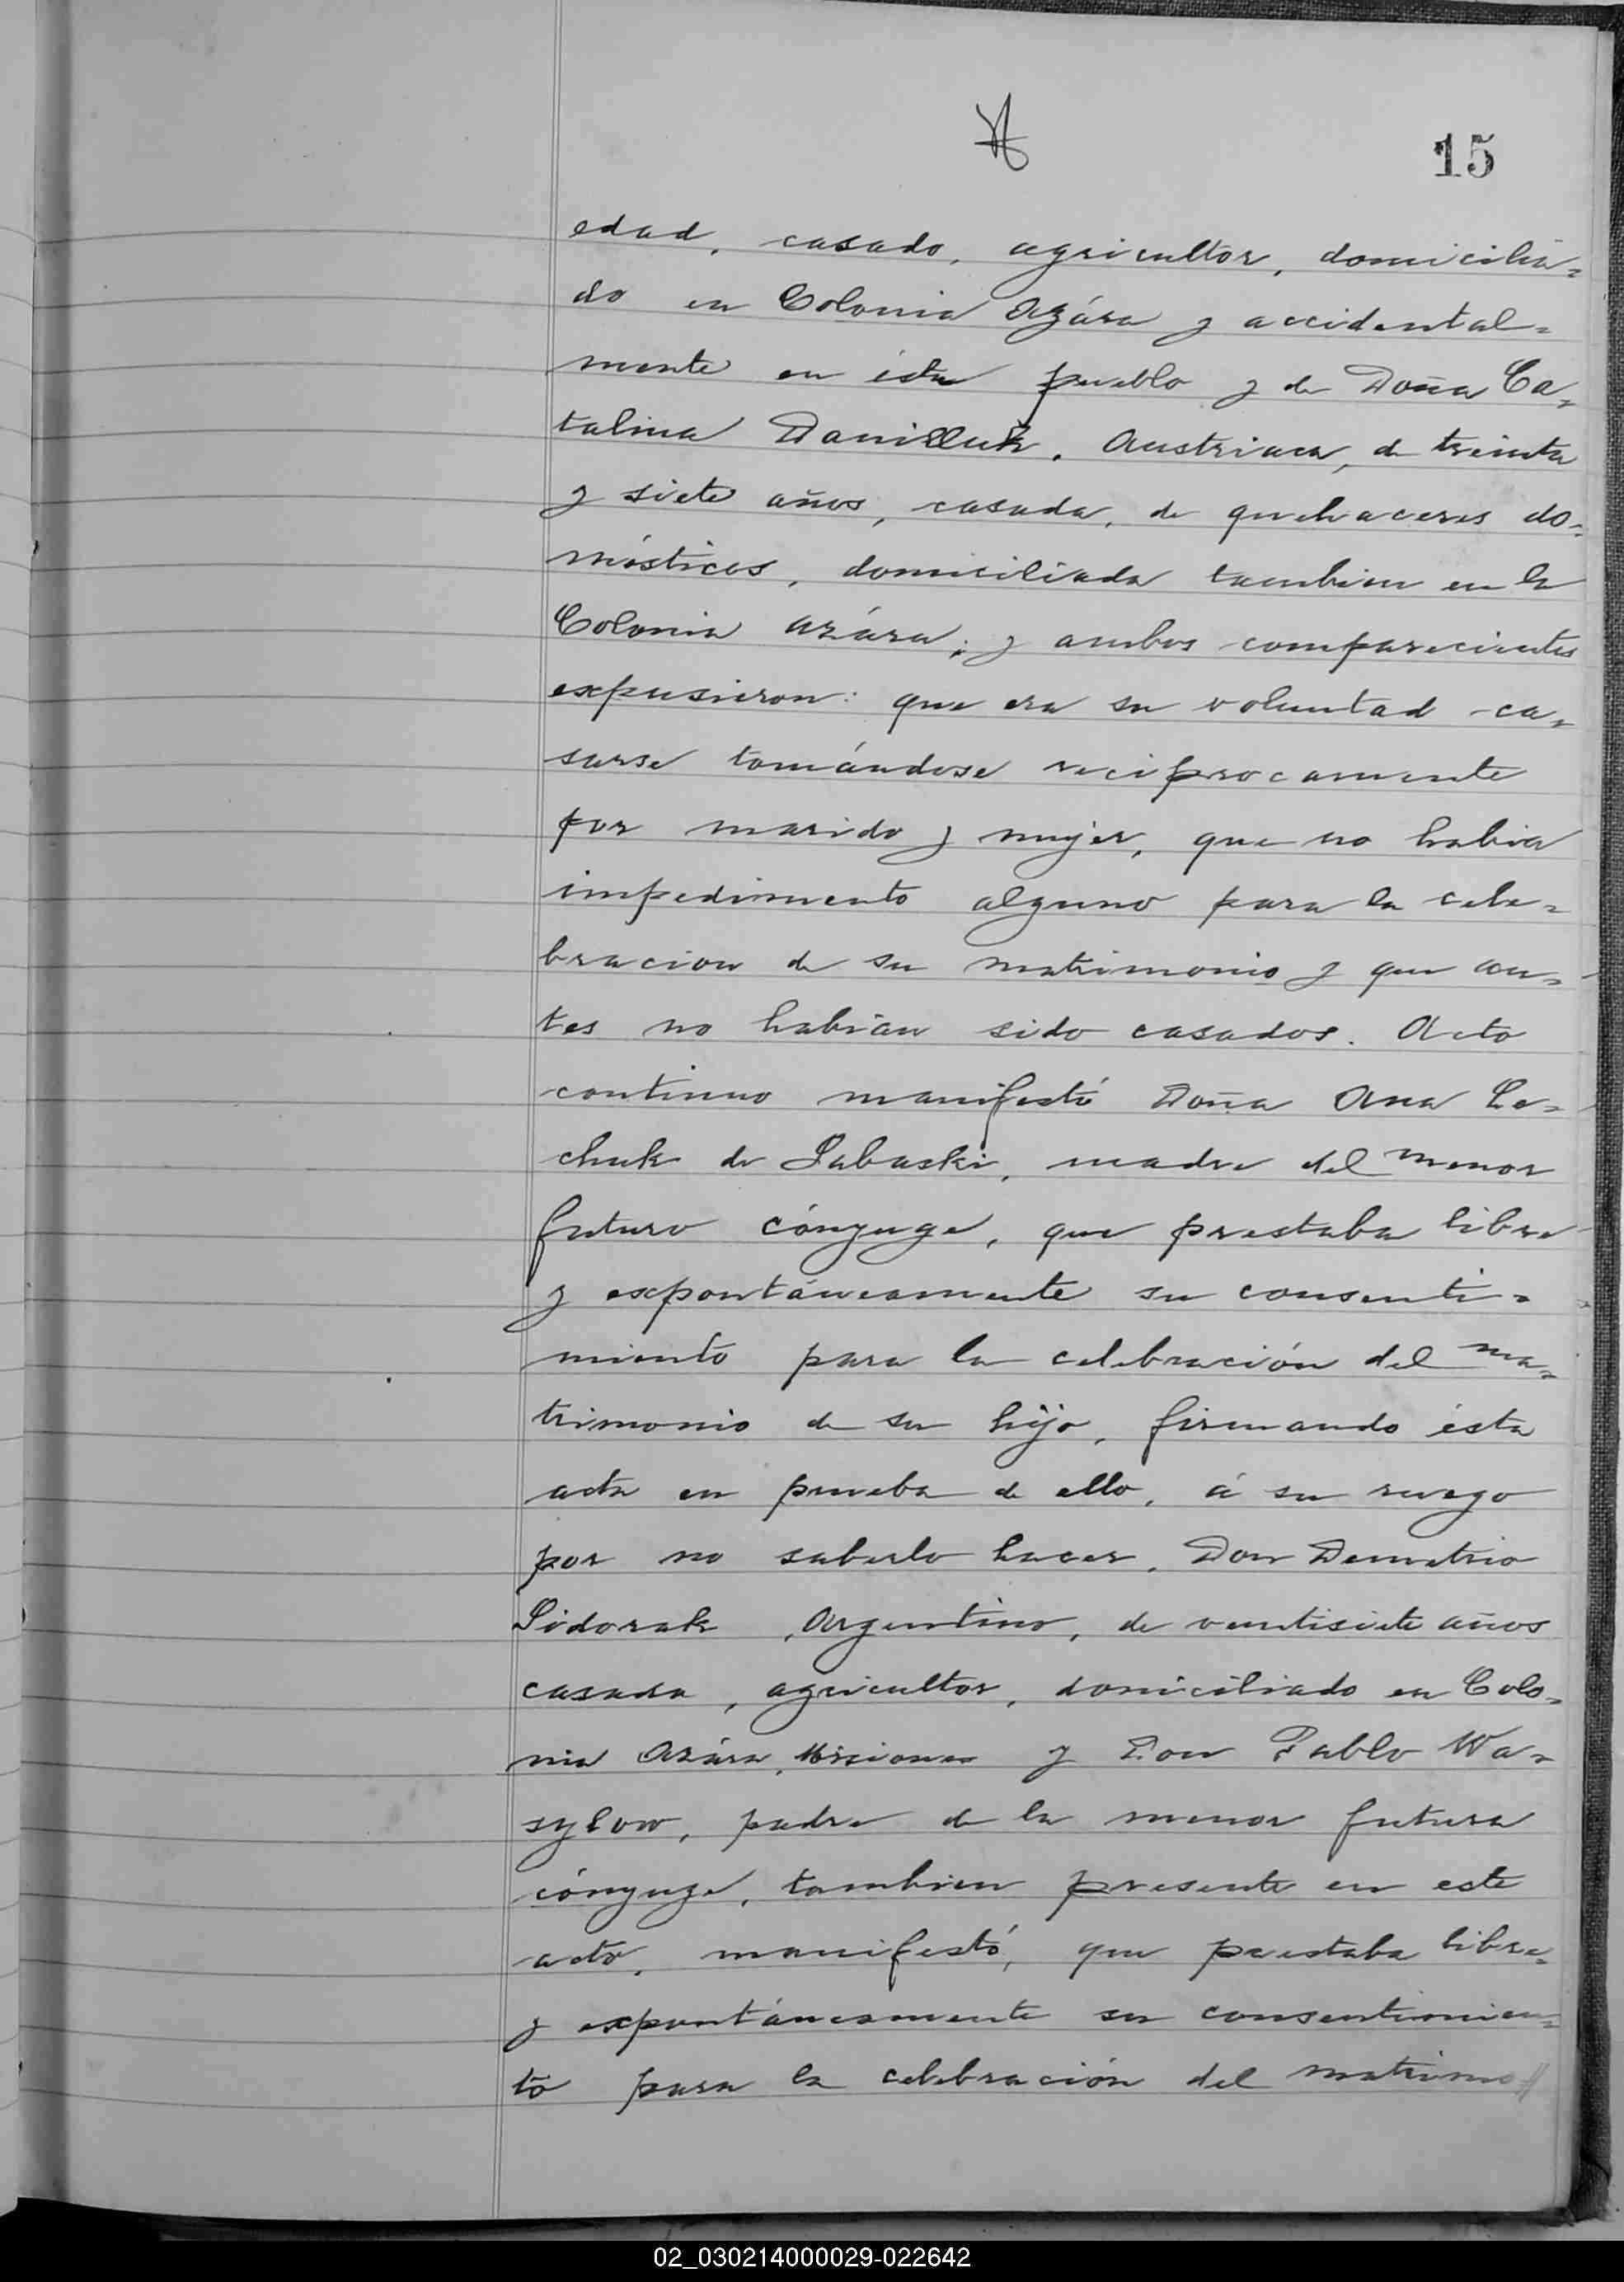 15
edad, casado, agricultor, domicilia=
do en Colonia Azára y accidental=
mente en éste pueblo y de Doña Ca=
talina Danilluk, Austriaca, de treinta
y siete años, casada, de quehaceres do=
mésticos, domiciliada tambien en la
Colonia Azára; y ambos comparecientes
expusieron: que era su voluntad ca=
sarse tomándose reciprocamente
por marido y mujer, que no habia
impedimento alguno para la cele=
bracion de su matrimonio y que an=
tes no habian sido casados. Acto
continuo manifestó Doña Ana Le=
chuk de Sabaski, madre del menor
futuro cónyuge, que prestaba libre
y expontáneamente su consenti=
miento para la celebración del ma=
trimonio de su hijo, firmando ésta
acta en prueba de ello, á su ruego
por no saberlo hacer, Don Demetrio
Sidorak, Argentino, de veintisiete años
casado, agricultor, domiciliado en Colo=
nia Azára, Misiones y Don Pablo Wa=
sylow, padre de la menor futura
cónyuge, tambien presente en este
acto, manifestó, que prestaba libre=
y expontáneamente su consentimien=
to para la celebración del matrimo//
02_030214000029-022642